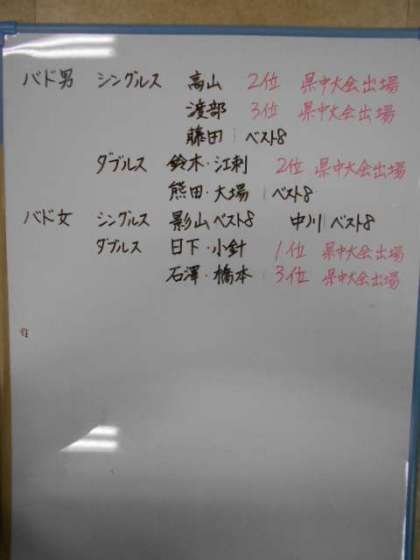 バド男 シングルス 高山 2位 県中大会出場
渡部 3位 県中大会出場
藤田 ベスト8
ダブルス 鈴木・江刺 2位 県中大会出場
熊田・大場 ベスト8
バド女 シングルス 影山 ベスト8 中川 ベスト8
ダブルス 日下・小針 1位 県中大会出場
石澤・橋本 3位 県中大会出場